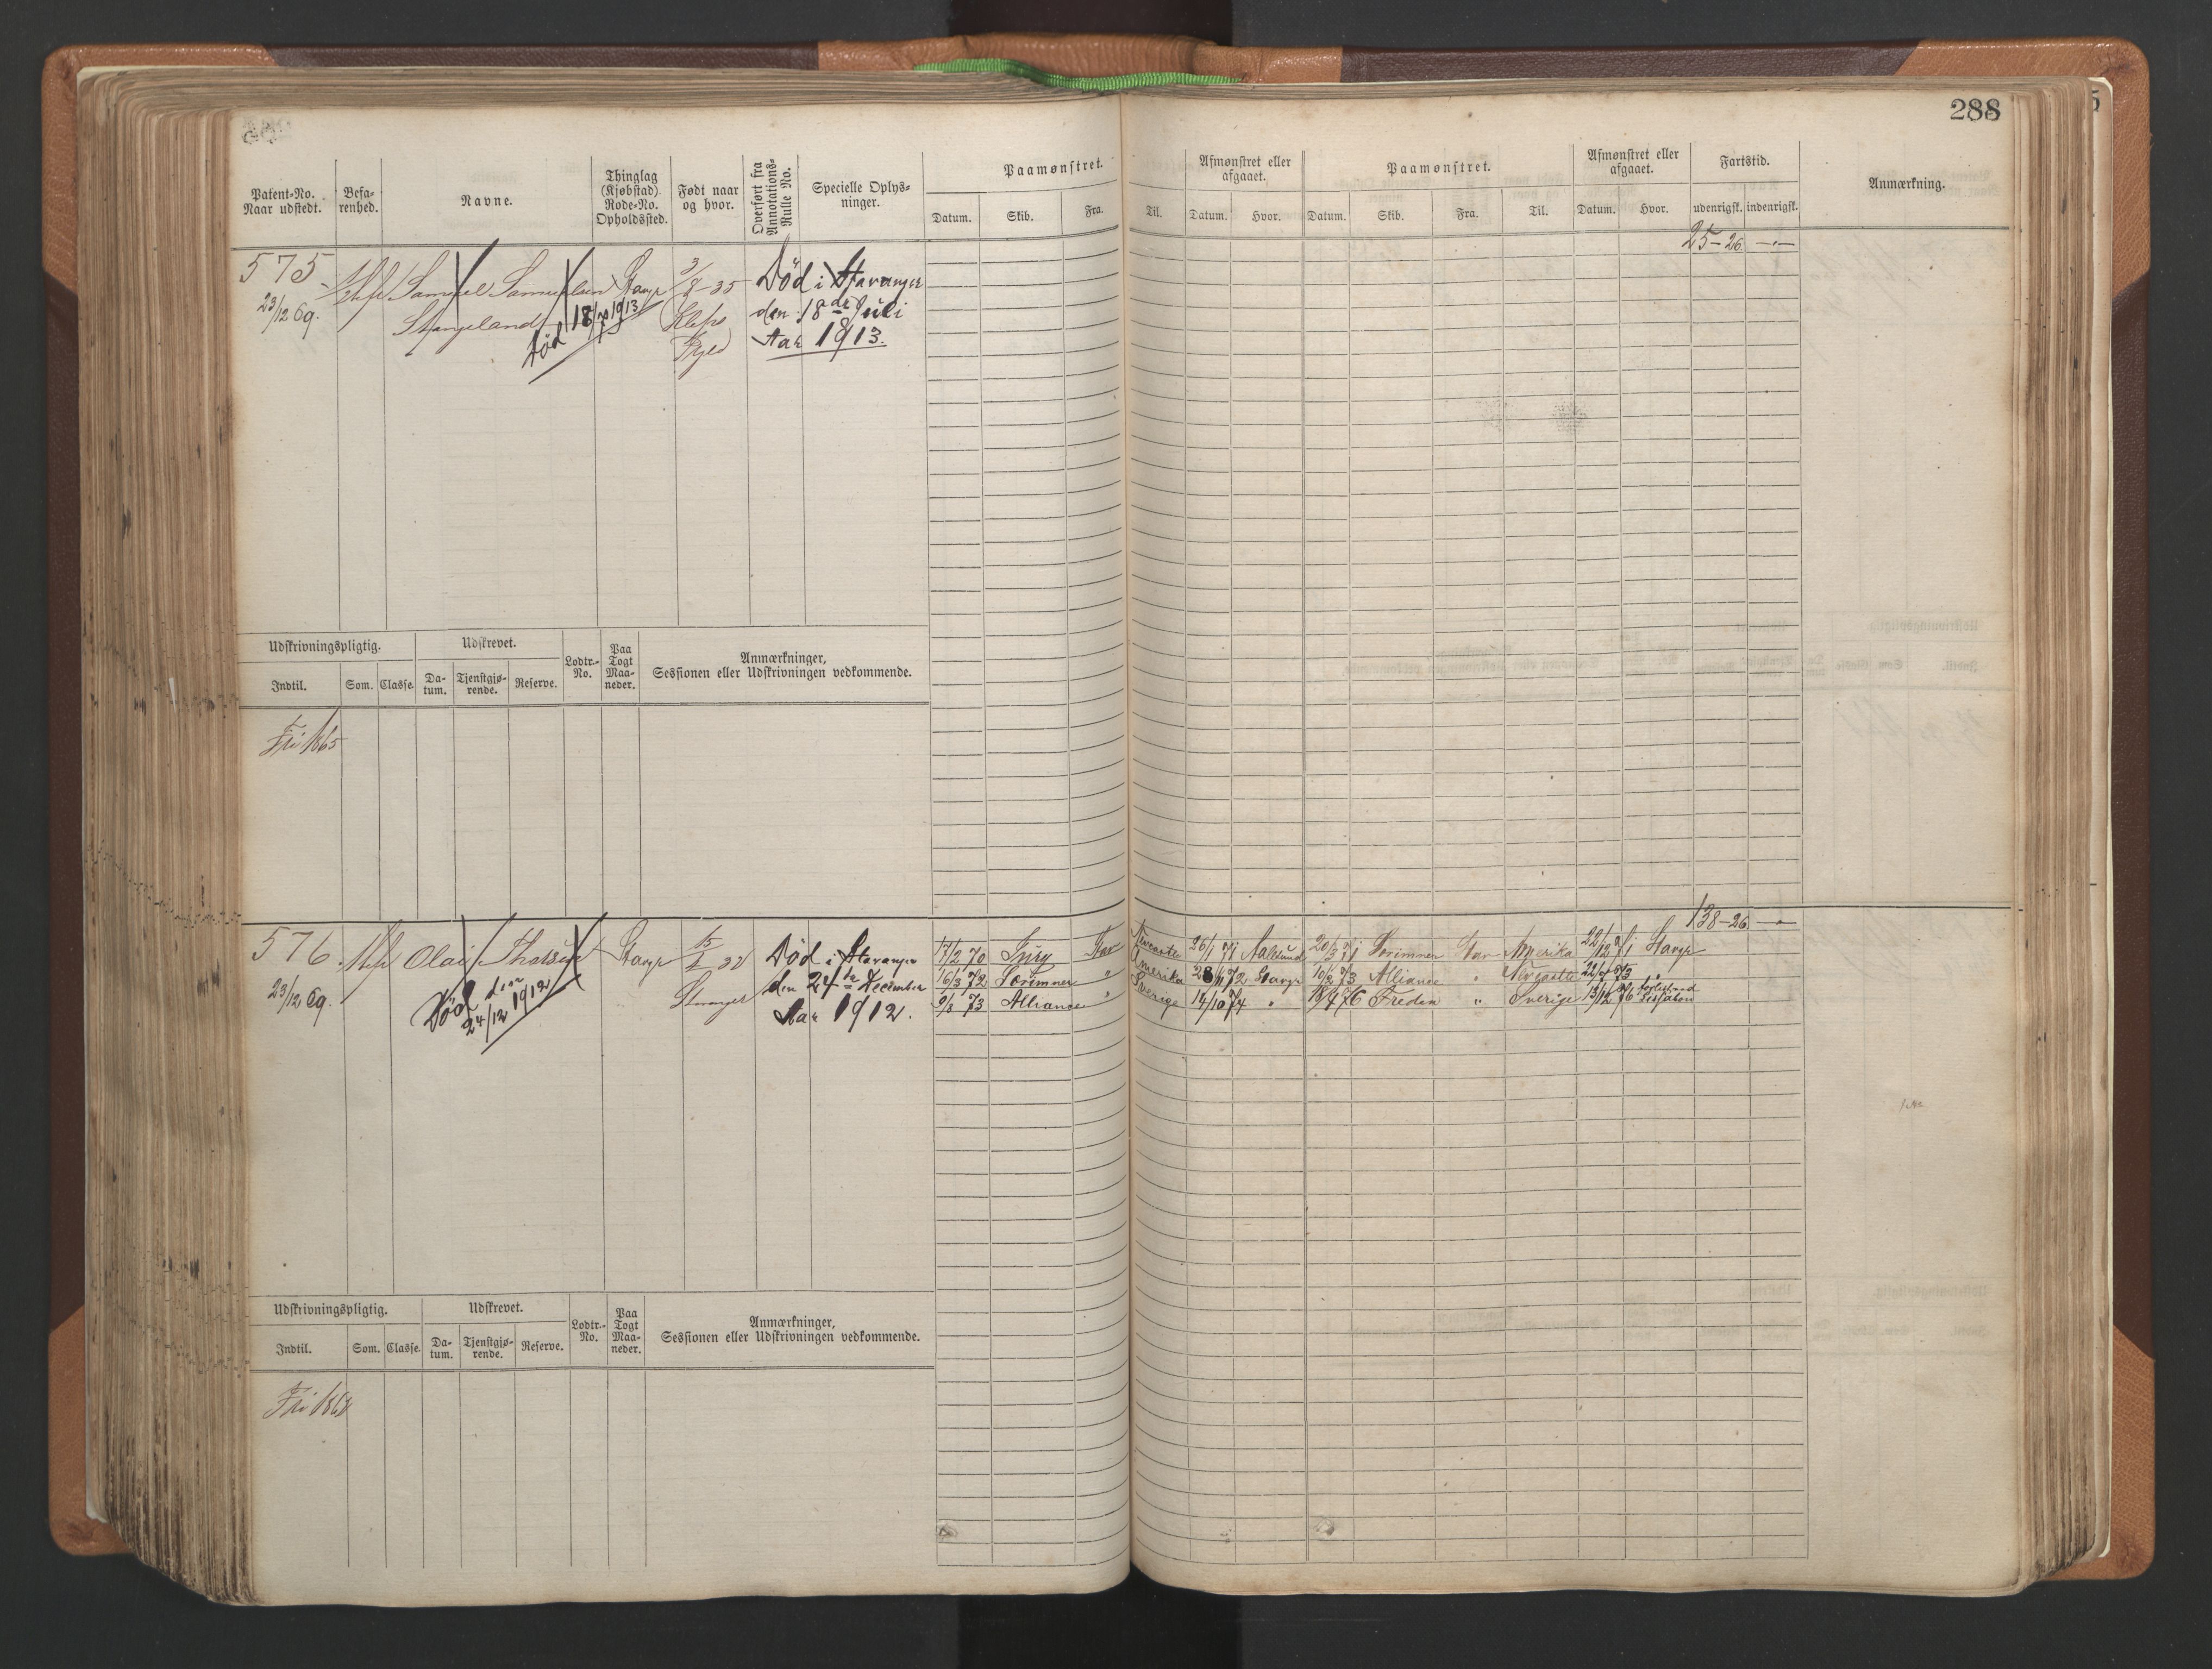 288
Patent-No.
Naar udstedt.
Befa-
renhed.
Navne.
Thinglag
(Kjøbstad).
Rode-No.
Opholdssted.
Født naar
og hvor.
Overført fra
Annotations-
Rulle No.
Specielle Oplys-
ninger.
Paamønstret.
Datum. Skib. Fra. Til.
Afmønstret eller
afgaaet.
Datum. Hvor.
Paamønstret.
Datum. Skib. Fra. Til.
Afmønstret eller
afgaaet.
Datum. Hvor.
Fartstid.
udenrigsk. indenrigsk.
Anmærkning.
25-26
575
23/12 69.
Samuel Samuelsen
Stangeland
Død 18/7 1913
Stavgr
3/8-35
Klep
Død i Stavanger
den 18de Juli
Aar 1913.
Udskrivningspligtig.
Indtil. Som. Classe.
Udskrevet.
Da-
tum.
Tjenstgjø-
rende.
Reserve.
Lodtr.-
No.
Paa
Togt
Maa-
neder.
Anmærkninger,
Sessionen eller Udskrivningen vedkommende.
Fri 1865
138-26
576
23/12 69.
Olaus
Død den
24/12 1912
Stavgr
Stavanger
Død i Stavanger
den 24de December
Aar 1912.
17/2 70 Stav Newcastle 26/1 71 Aalesund 20/3 71 Sørimner Stav Amerika 22/12 71 Stavgr
16/3 72 Sørimner " Amerika 28/11 72 Stavgr 10/2 73 Alliance " Newcastle 22/4 73 "
9/8 73 Alliance " Sverige 14/10 74 " 18/4 76 Freden " Sverige 13/12 76
Udskrivningspligtig.
Indtil. Som. Classe.
Udskrevet.
Da-
tum.
Tjenstgjø-
rende.
Reserve.
Lodtr.-
No.
Paa
Togt
Maa-
neder.
Anmærkninger,
Sessionen eller Udskrivningen vedkommende.
Fri 1868